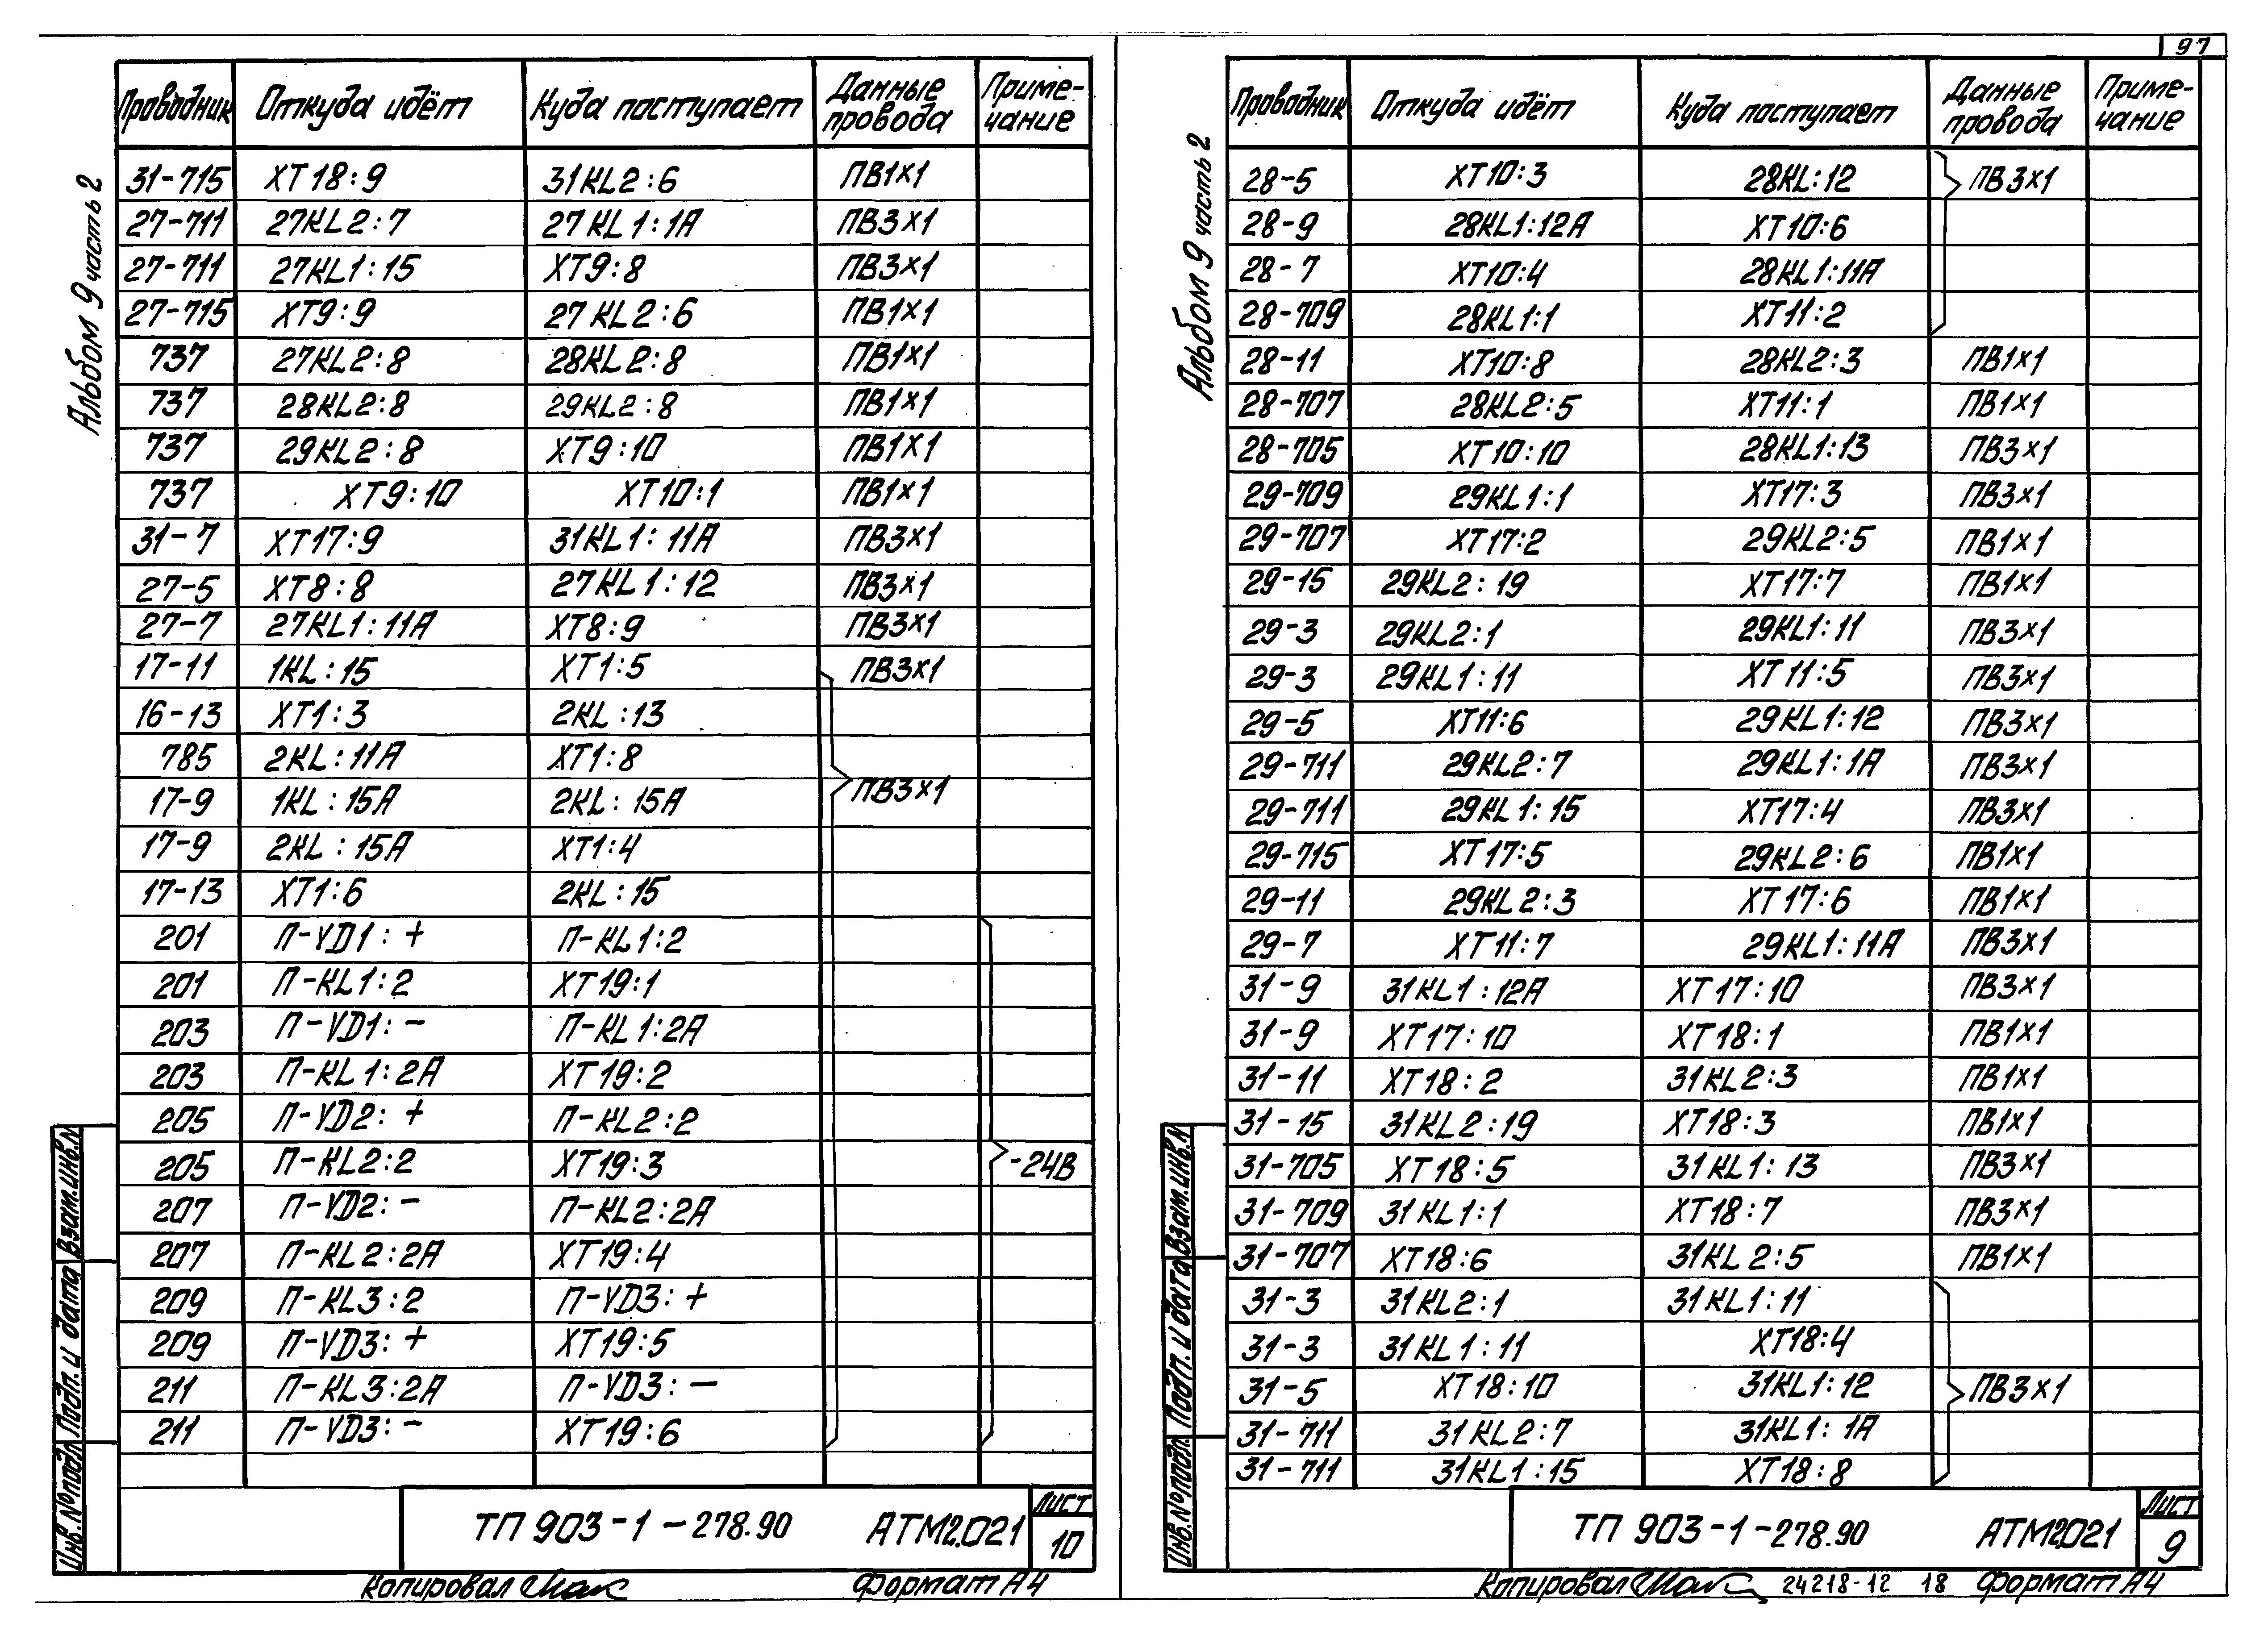 97
Альбом 9 часть 2
Проводник Откуда идёт Куда поступает Данные провода Приме-чание
31-715 XT18:9 31KL2:6 ПВ1×1
27-711 27KL2:7 27KL1:1А ПВ3×1
27-711 27KL1:15 XT9:8 ПВ3×1
27-715 XT9:9 27KL2:6 ПВ1×1
737 27KL2:8 28KL2:8 ПВ1×1
737 28KL2:8 29KL2:8 ПВ1×1
737 29KL2:8 XT9:10 ПВ1×1
737 XT9:10 XT10:1 ПВ1×1
31-7 XT17:9 31KL1:11А ПВ3×1
27-5 XT8:8 27KL1:12 ПВ3×1
27-7 27KL1:11А XT8:9 ПВ3×1
17-11 1KL:15 XT1:5 ПВ3×1
16-13 XT1:3 2KL:13
785 2KL:11А XT1:8
17-9 1KL:15А 2KL:15А ПВ3×1
17-9 2KL:15А XT1:4
17-13 XT1:6 2KL:15
201 П-VD1:+ П-KL1:2
201 П-KL1:2 XT19:1
203 П-VD1:- П-KL1:2А
203 П-KL1:2А XT19:2
205 П-VD2:+ П-KL2:2
205 П-KL2:2 XT19:3 -24В
207 П-VD2:- П-KL2:2А
207 П-KL2:2А XT19:4
209 П-KL3:2 П-VD3:+
209 П-VD3:+ XT19:5
211 П-KL3:2А П-VD3:-
211 П-VD3:- XT19:6
Взам.инв.N
Подп. и дата
Инв.№подл.
ТП 903-1-278.90 АТМ2.021
Лист
10
Копировал Формат А4
Альбом 9 часть 2
Проводник Откуда идёт Куда поступает Данные провода Приме-чание
28-5 XT10:3 28KL:12 ПВ3×1
28-9 28KL1:12А XT10:6
28-7 XT10:4 28KL1:11А
28-709 28KL1:1 XT11:2
28-11 XT10:8 28KL2:3 ПВ1×1
28-707 28KL2:5 XT11:1 ПВ1×1
28-705 XT10:10 28KL1:13 ПВ3×1
29-709 29KL1:1 XT17:3 ПВ3×1
29-707 XT17:2 29KL2:5 ПВ1×1
29-15 29KL2:19 XT17:7 ПВ1×1
29-3 29KL2:1 29KL1:11 ПВ3×1
29-3 29KL1:11 XT11:5 ПВ3×1
29-5 XT11:6 29KL1:12 ПВ3×1
29-711 29KL2:7 29KL1:1А ПВ3×1
29-711 29KL1:15 XT17:4 ПВ3×1
29-715 XT17:5 29KL2:6 ПВ1×1
29-11 29KL2:3 XT17:6 ПВ1×1
29-7 XT11:7 29KL1:11А ПВ3×1
31-9 31KL1:12А XT17:10 ПВ3×1
31-9 XT17:10 XT18:1 ПВ1×1
31-11 XT18:2 31KL2:3 ПВ1×1
31-15 31KL2:19 XT18:3 ПВ1×1
31-705 XT18:5 31KL1:13 ПВ3×1
31-709 31KL1:1 XT18:7 ПВ3×1
31-707 XT18:6 31KL2:5 ПВ1×1
31-3 31KL2:1 31KL1:11
31-3 31KL1:11 XT18:4
31-5 XT18:10 31KL1:12 ПВ3×1
31-711 31KL2:7 31KL1:1А
31-711 31KL1:15 XT18:8
Взам.инв.N
Подп. и дата
Инв.№подл.
ТП 903-1-278.90 АТМ2.021
Лист
9
Копировал 24218-12 18 Формат А4